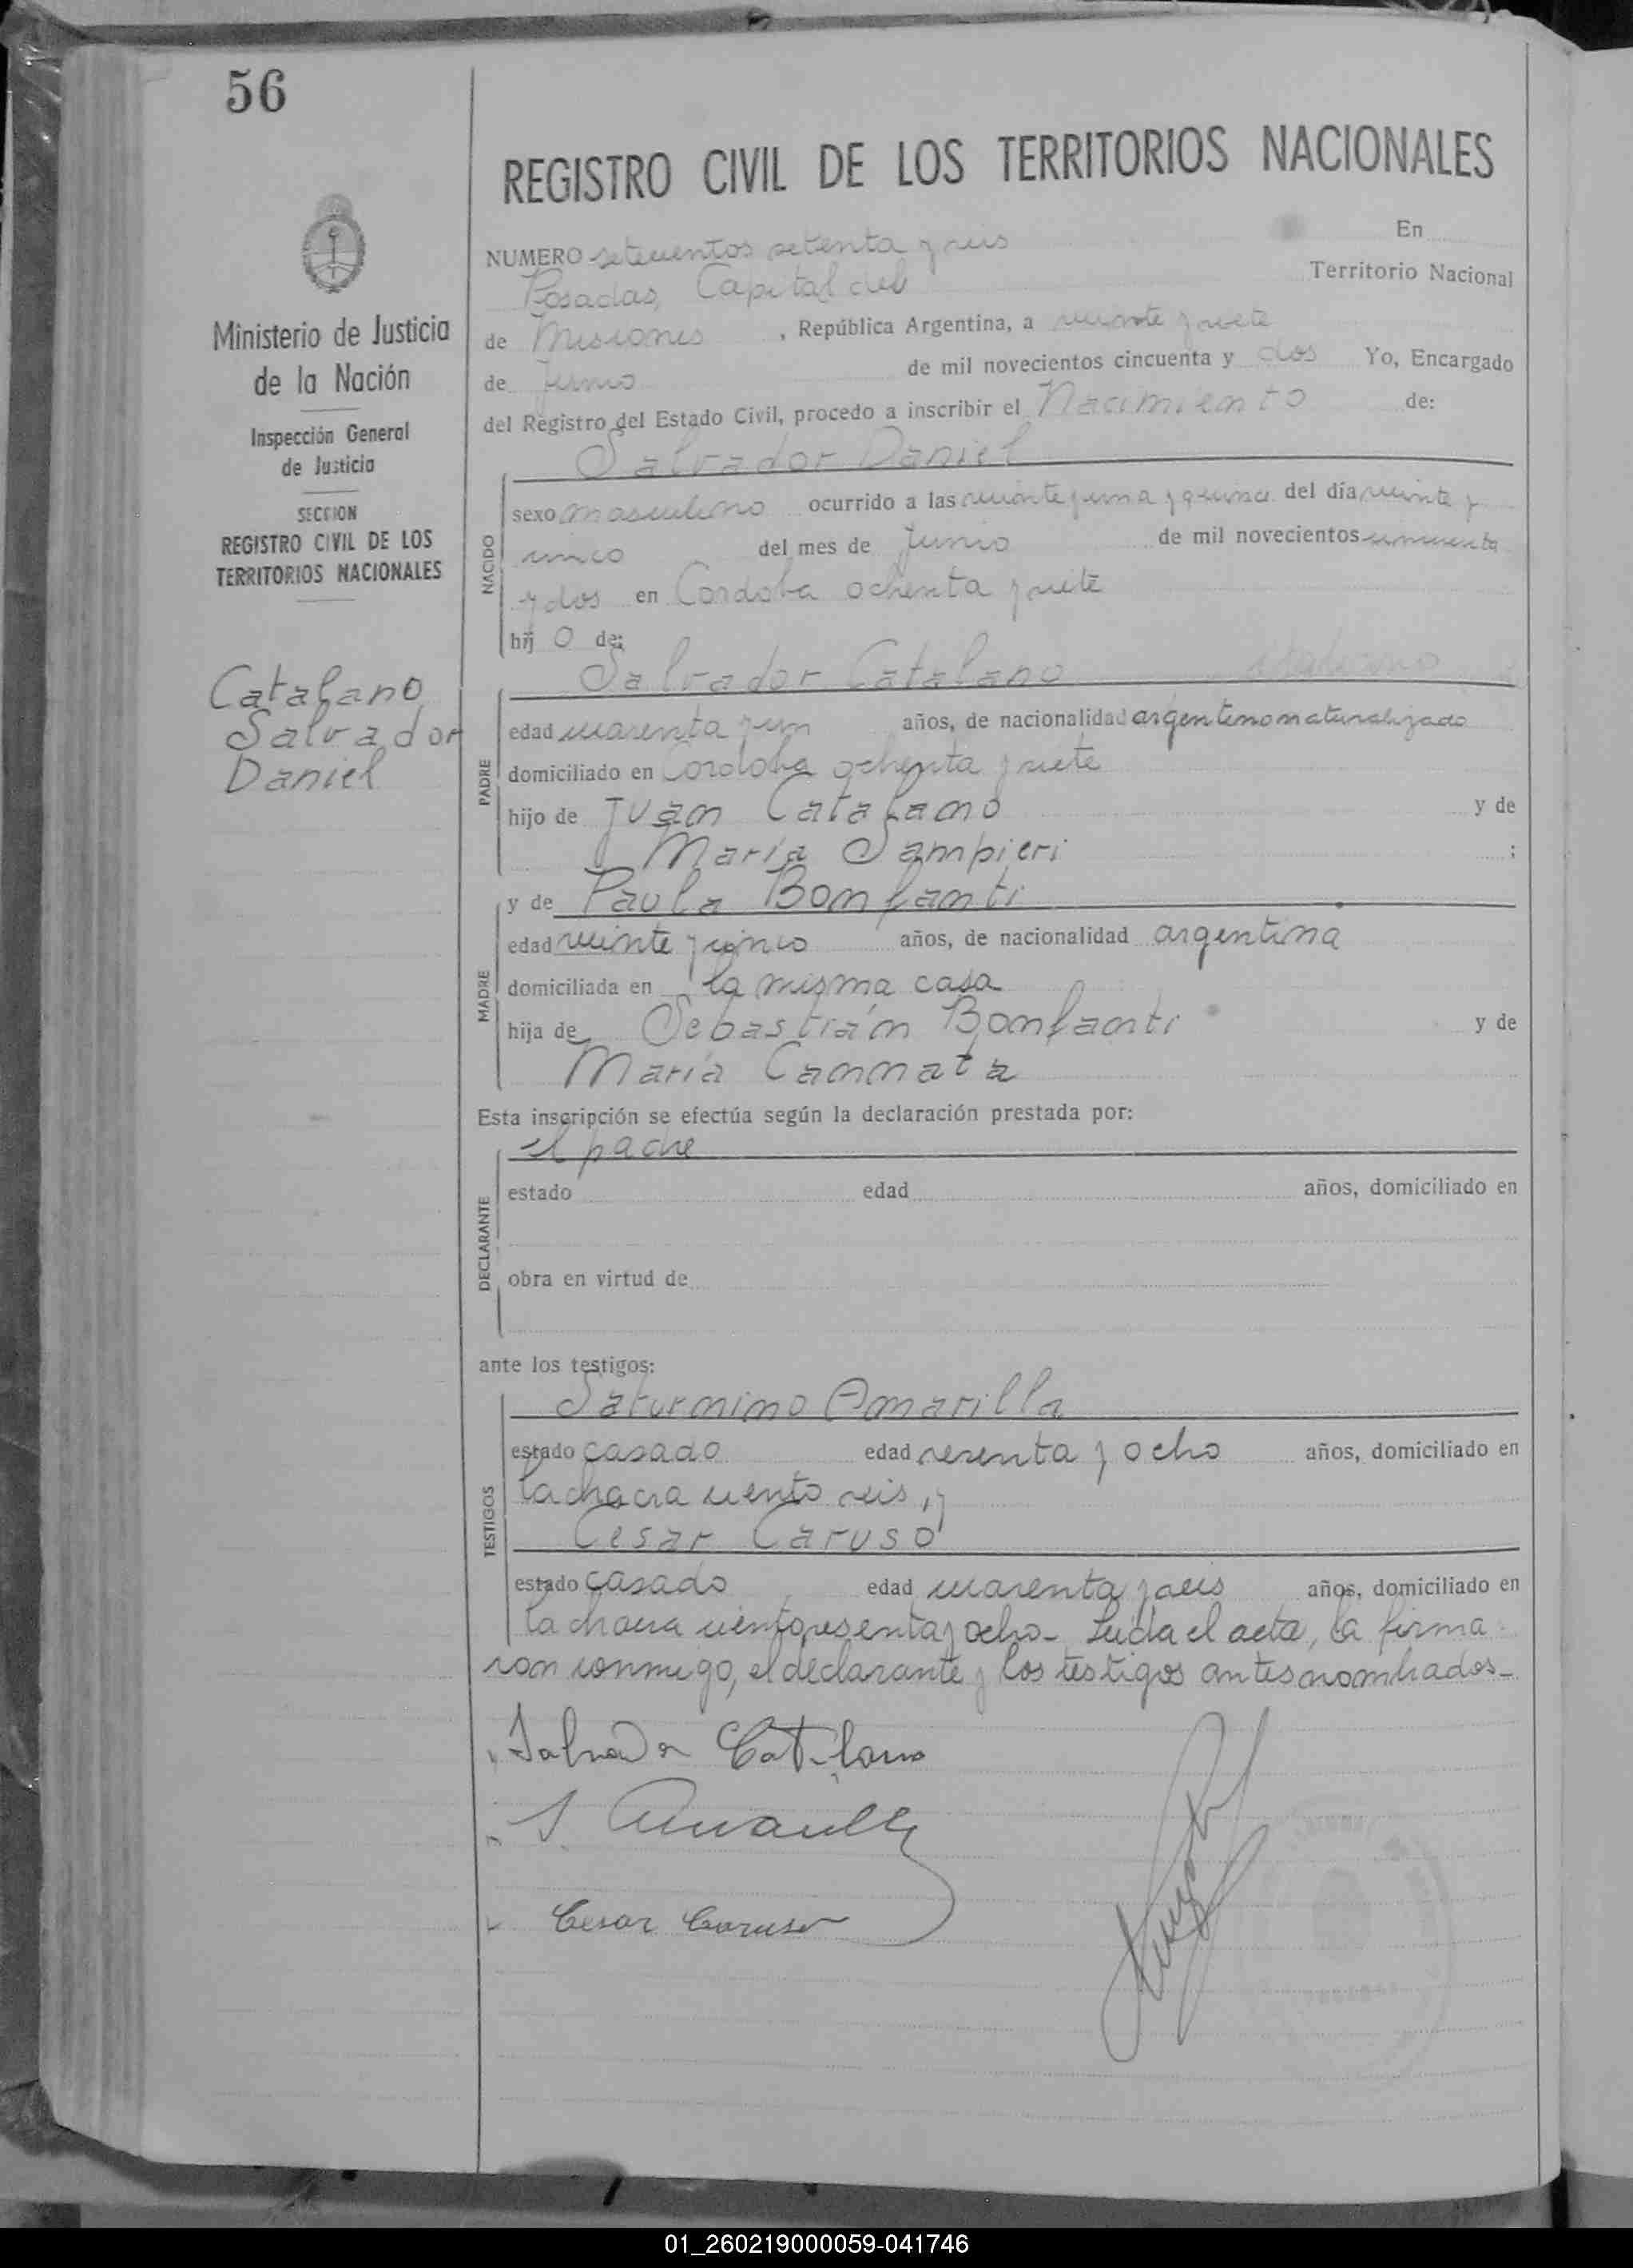 56
REGISTRO CIVIL DE LOS TERRITORIOS NACIONALES
Ministerio de Justicia
de la Nación
Inspección General
de Justicia
SECCION
REGISTRO CIVIL DE LOS
TERRITORIOS NACIONALES
Catalano
Salvador
Daniel
NUMERO setecientos setenta y seis En
Posadas, Capital del Territorio Nacional
de Misiones, República Argentina, a veinte y siete
de Junio de mil novecientos cincuenta y dos Yo, Encargado
del Registro del Estado Civil, procedo a inscribir el Nacimiento de:
Salvador Daniel
NACIDO
sexo masculino ocurrido a las veinte y una y quince del día veinte y
cinco del mes de Junio de mil novecientos cincuenta
y dos en Cordoba ochenta y siete
hij o de:
Salvador Catalano italiano
PADRE
edad cuarenta y un años, de nacionalidad argentino naturalizado
domiciliado en Cordoba ochenta y siete
hijo de Juan Catalano y de
María Sampieri ;
y de Paula Bonfanti
MADRE
edad veinte y cinco años, de nacionalidad argentina
domiciliada en la misma casa
hija de Sebastián Bonfanti y de
María Cannata
Esta inscripción se efectúa según la declaración prestada por:
el padre
DECLARANTE
estado edad años, domiciliado en
obra en virtud de
ante los testigos:
Saturnino Amarilla
TESTIGOS
estado casado edad sesenta y ocho años, domiciliado en
la chacra ciento seis, y
Cesar Caruso
estado casado edad cuarenta y seis años, domiciliado en
la chacra ciento sesenta y ocho- Leida el acta, la firma
ron conmigo, el declarante y los testigos antes nombrados-
Salvador Catalano
S. Amarilla
Cesar Caruso
01_260219000059-041746